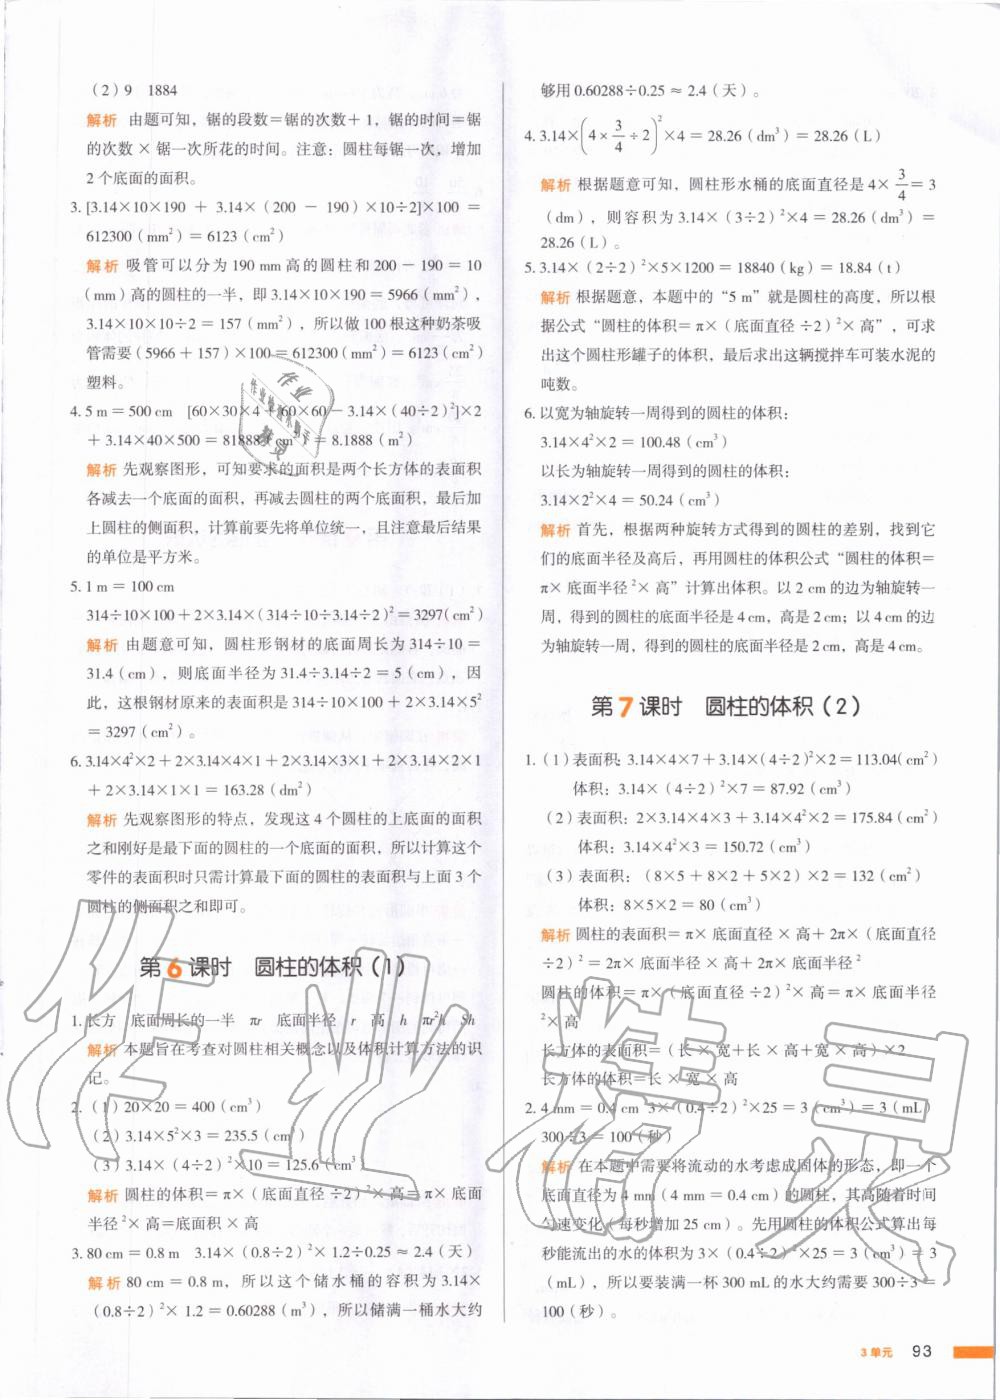 (2)9 1884
解析 由题可知，锯的段数=锯的次数+1，锯的时间=锯
的次数×锯一次所花的时间。注意：圆柱每锯一次，增加
2个底面的面积。
3.[3.14×10×190 + 3.14×(200 - 190)×10÷2]×100 =
612300(mm²)= 6123(cm²)
解析 吸管可以分为190 mm高的圆柱和200-190=10
(mm)高的圆柱的一半，即3.14×10×190=5966(mm²)，
3.14×10×10÷2=157(mm²)，所以做100根这种奶茶吸
管需要(5966+157)×100=612300(mm²)=6123(cm²)
塑料。
4.5 m=500 cm [60×30×4+60×60-3.14×(40÷2)²]×2
+3.14×40×500=81888(cm²)=8.1888(m²)
解析 先观察图形，可知要求的面积是两个长方体的表面积
各减去一个底面的面积，再减去圆柱的两个底面积，最后加
上圆柱的侧面积，计算前要先将单位统一，且注意最后结果
的单位是平方米。
5.1 m=100 cm
314÷10×100+2×3.14×(314÷10÷3.14÷2)²=3297(cm²)
解析 由题意可知，圆柱形钢材的底面周长为314÷10=
31.4(cm)，则底面半径为31.4÷3.14÷2=5(cm)，因
此，这根钢材原来的表面积是314÷10×100+2×3.14×5²
=3297(cm²)。
6.3.14×4²×2+2×3.14×4×1+2×3.14×3×1+2×3.14×2×1
+2×3.14×1×1=163.28(dm²)
解析 先观察图形的特点，发现这4个圆柱的上底面的面积
之和刚好是最下面的圆柱的一个底面的面积，所以计算这个
零件的表面积时只需计算最下面的圆柱的表面积与上面3个
圆柱的侧面积之和即可。
第6课时 圆柱的体积(1)
1.长方 底面周长的一半 πr 底面半径 r 高 h πr²h Sh
解析 本题旨在考查对圆柱相关概念以及体积计算方法的识
记。
2.(1)20×20=400(cm³)
(2)3.14×5²×3=235.5(cm³)
(3)3.14×(4÷2)²×10=125.6(cm³)
解析 圆柱的体积=π×(底面直径÷2)²×高=π×底面
半径²×高=底面积×高
3.80 cm=0.8 m 3.14×(0.8÷2)²×1.2÷0.25≈2.4(天)
解析 80 cm=0.8 m，所以这个储水桶的容积为3.14×
(0.8÷2)²×1.2=0.60288(m³)，所以储满一桶水大约
够用0.60288÷0.25≈2.4(天)。
4.3.14×(4×3/4÷2)²×4=28.26(dm³)=28.26(L)
解析 根据题意可知，圆柱形水桶的底面直径是4×3/4=3
(dm)，则容积为3.14×(3÷2)²×4=28.26(dm³)=
28.26(L)。
5.3.14×(2÷2)²×5×1200=18840(kg)=18.84(t)
解析 根据题意，本题中的“5 m”就是圆柱的高度，所以根
据公式“圆柱的体积=π×(底面直径÷2)²×高”，可求
出这个圆柱形罐子的体积，最后求出这辆搅拌车可装水泥的
吨数。
6.以宽为轴旋转一周得到的圆柱的体积：
3.14×4²×2=100.48(cm³)
以长为轴旋转一周得到的圆柱的体积：
3.14×2²×4=50.24(cm³)
解析 首先，根据两种旋转方式得到的圆柱的差别，找到它
们的底面半径及高后，再用圆柱的体积公式“圆柱的体积=
π×底面半径²×高”计算出体积。以2 cm的边为轴旋转一
周，得到的圆柱的底面半径是4 cm，高是2 cm；以4 cm的边
为轴旋转一周，得到的圆柱的底面半径是2 cm，高是4 cm。
第7课时 圆柱的体积(2)
1.(1)表面积：3.14×4×7+3.14×(4÷2)²×2=113.04(cm²)
体积：3.14×(4÷2)²×7=87.92(cm³)
(2)表面积：2×3.14×4×3+3.14×4²×2=175.84(cm²)
体积：3.14×4²×3=150.72(cm³)
(3)表面积：(8×5+8×2+5×2)×2=132(cm²)
体积：8×5×2=80(cm³)
解析 圆柱的表面积=π×底面直径×高+2π×(底面直径
÷2)²=2π×底面半径×高+2π×底面半径²
圆柱的体积=π×(底面直径÷2)²×高=π×底面半径
²×高
长方体的表面积=(长×宽+长×高+宽×高)×2
长方体的体积=长×宽×高
2.4 mm=0.4 cm 3×(0.4÷2)²×25=3(cm³)=3(mL)
300÷3=100(秒)
解析 在本题中需要将流动的水考虑成固体的形态，即一个
底面直径为4 mm(4 mm=0.4 cm)的圆柱，其高随着时间
匀速变化(每秒增加25 cm)。先用圆柱的体积公式算出每
秒能流出的水的体积为3×(0.4÷2)²×25=3(cm³)=3
(mL)，所以要装满一杯300 mL的水大约需要300÷3=
100(秒)。
3单元 93
作业精灵